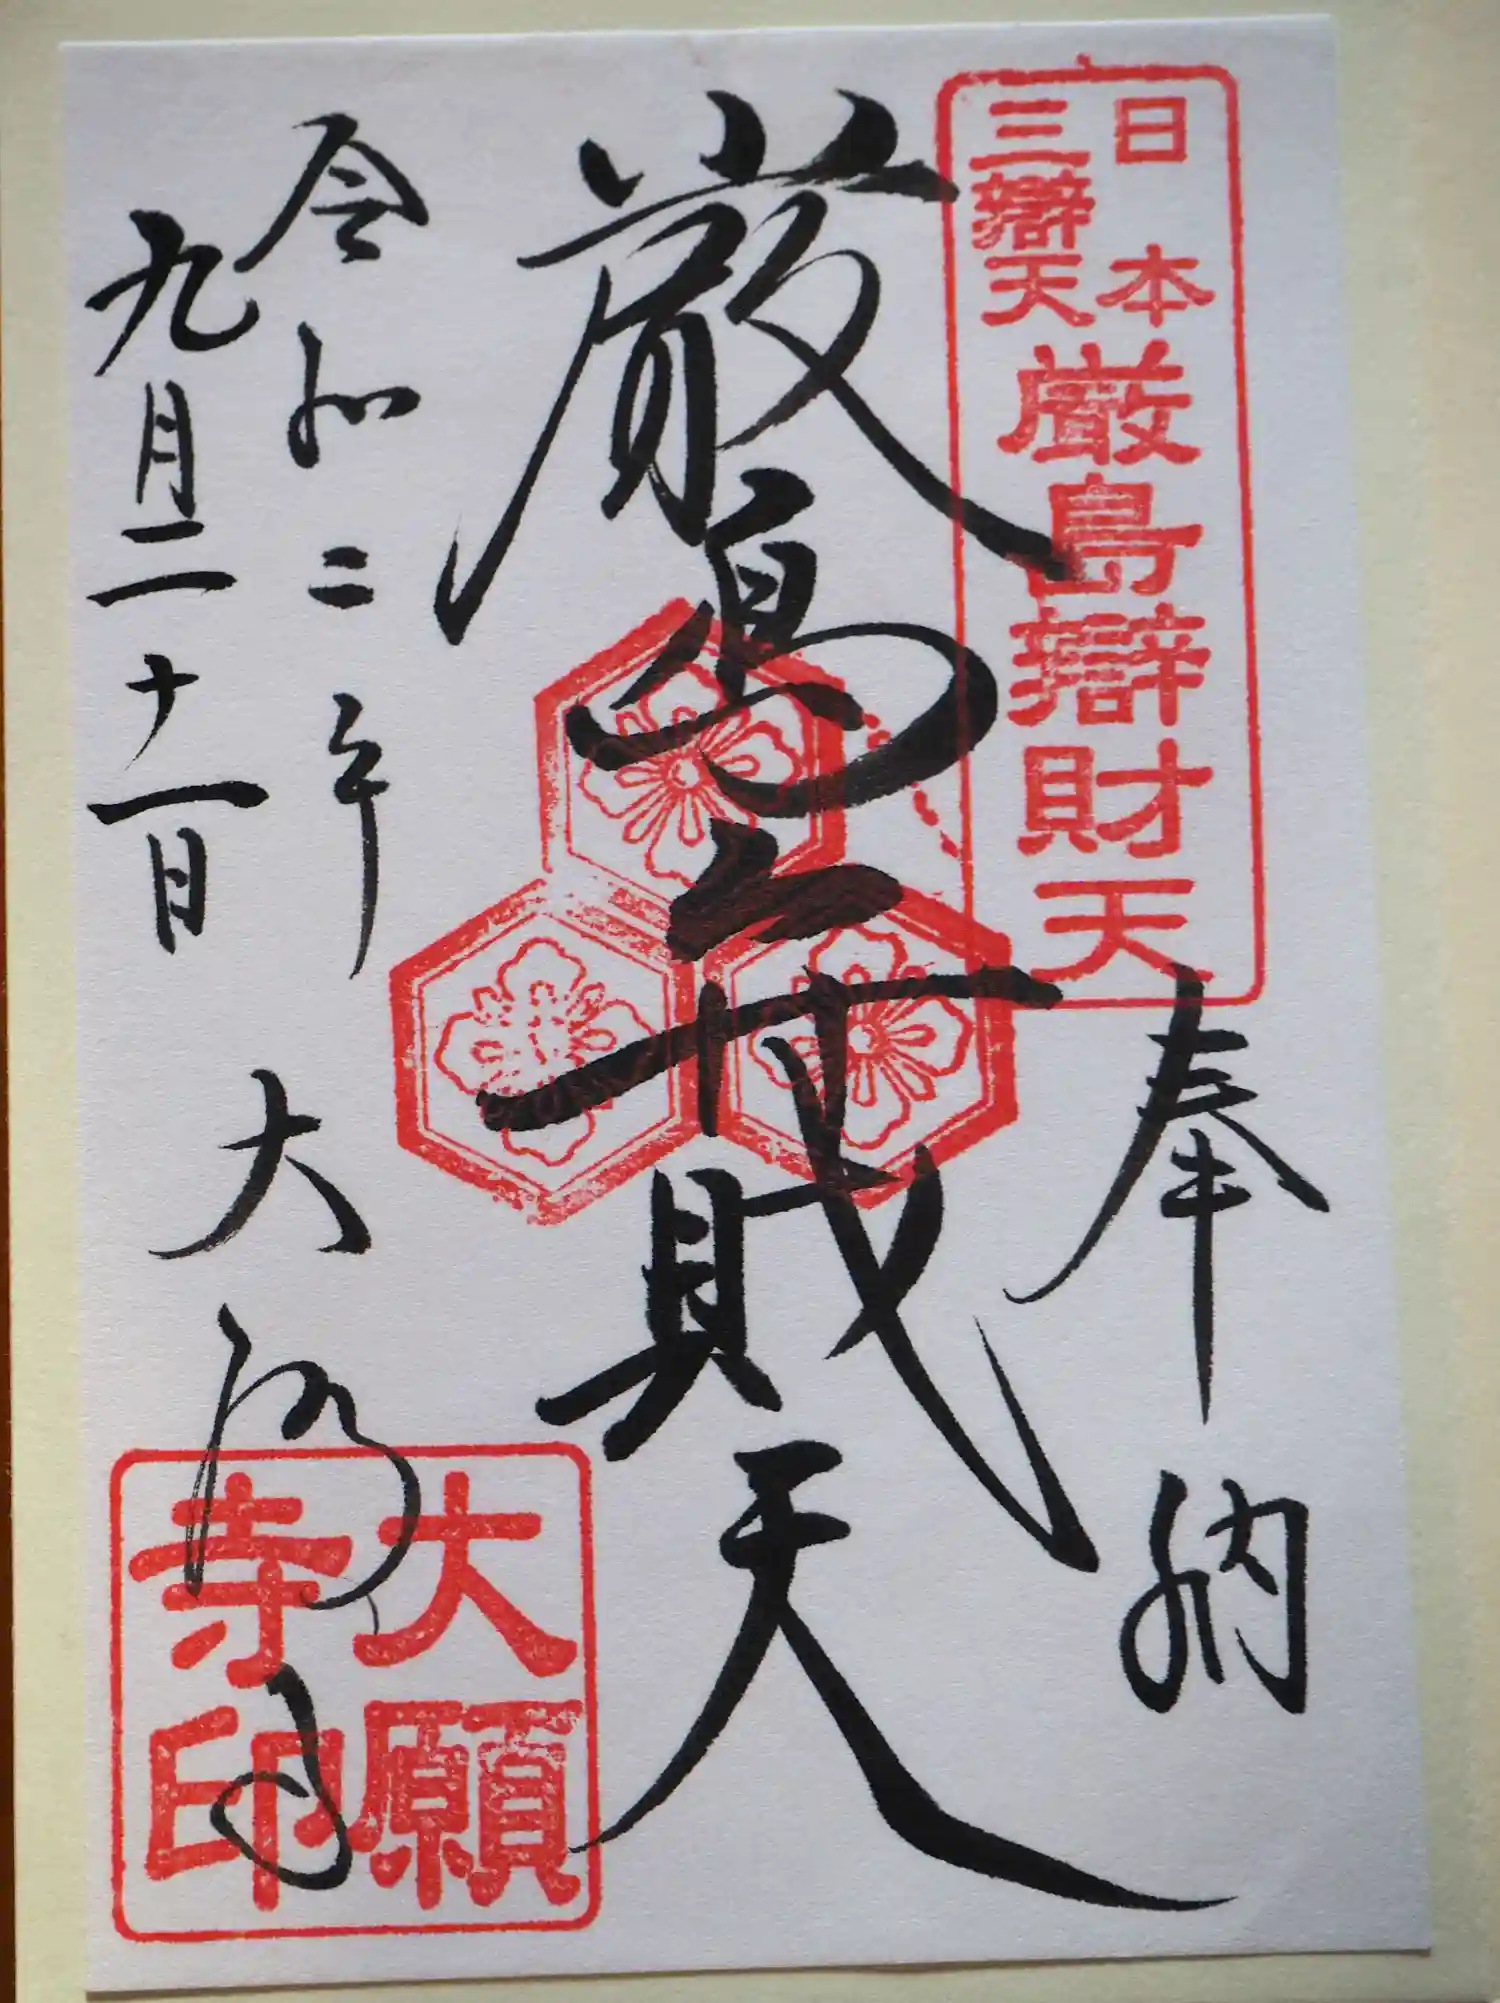 奉納
日本
三辯天
厳島辯財天
厳島弁財天
令和二年
九月二十一日
大願寺
大願
寺印